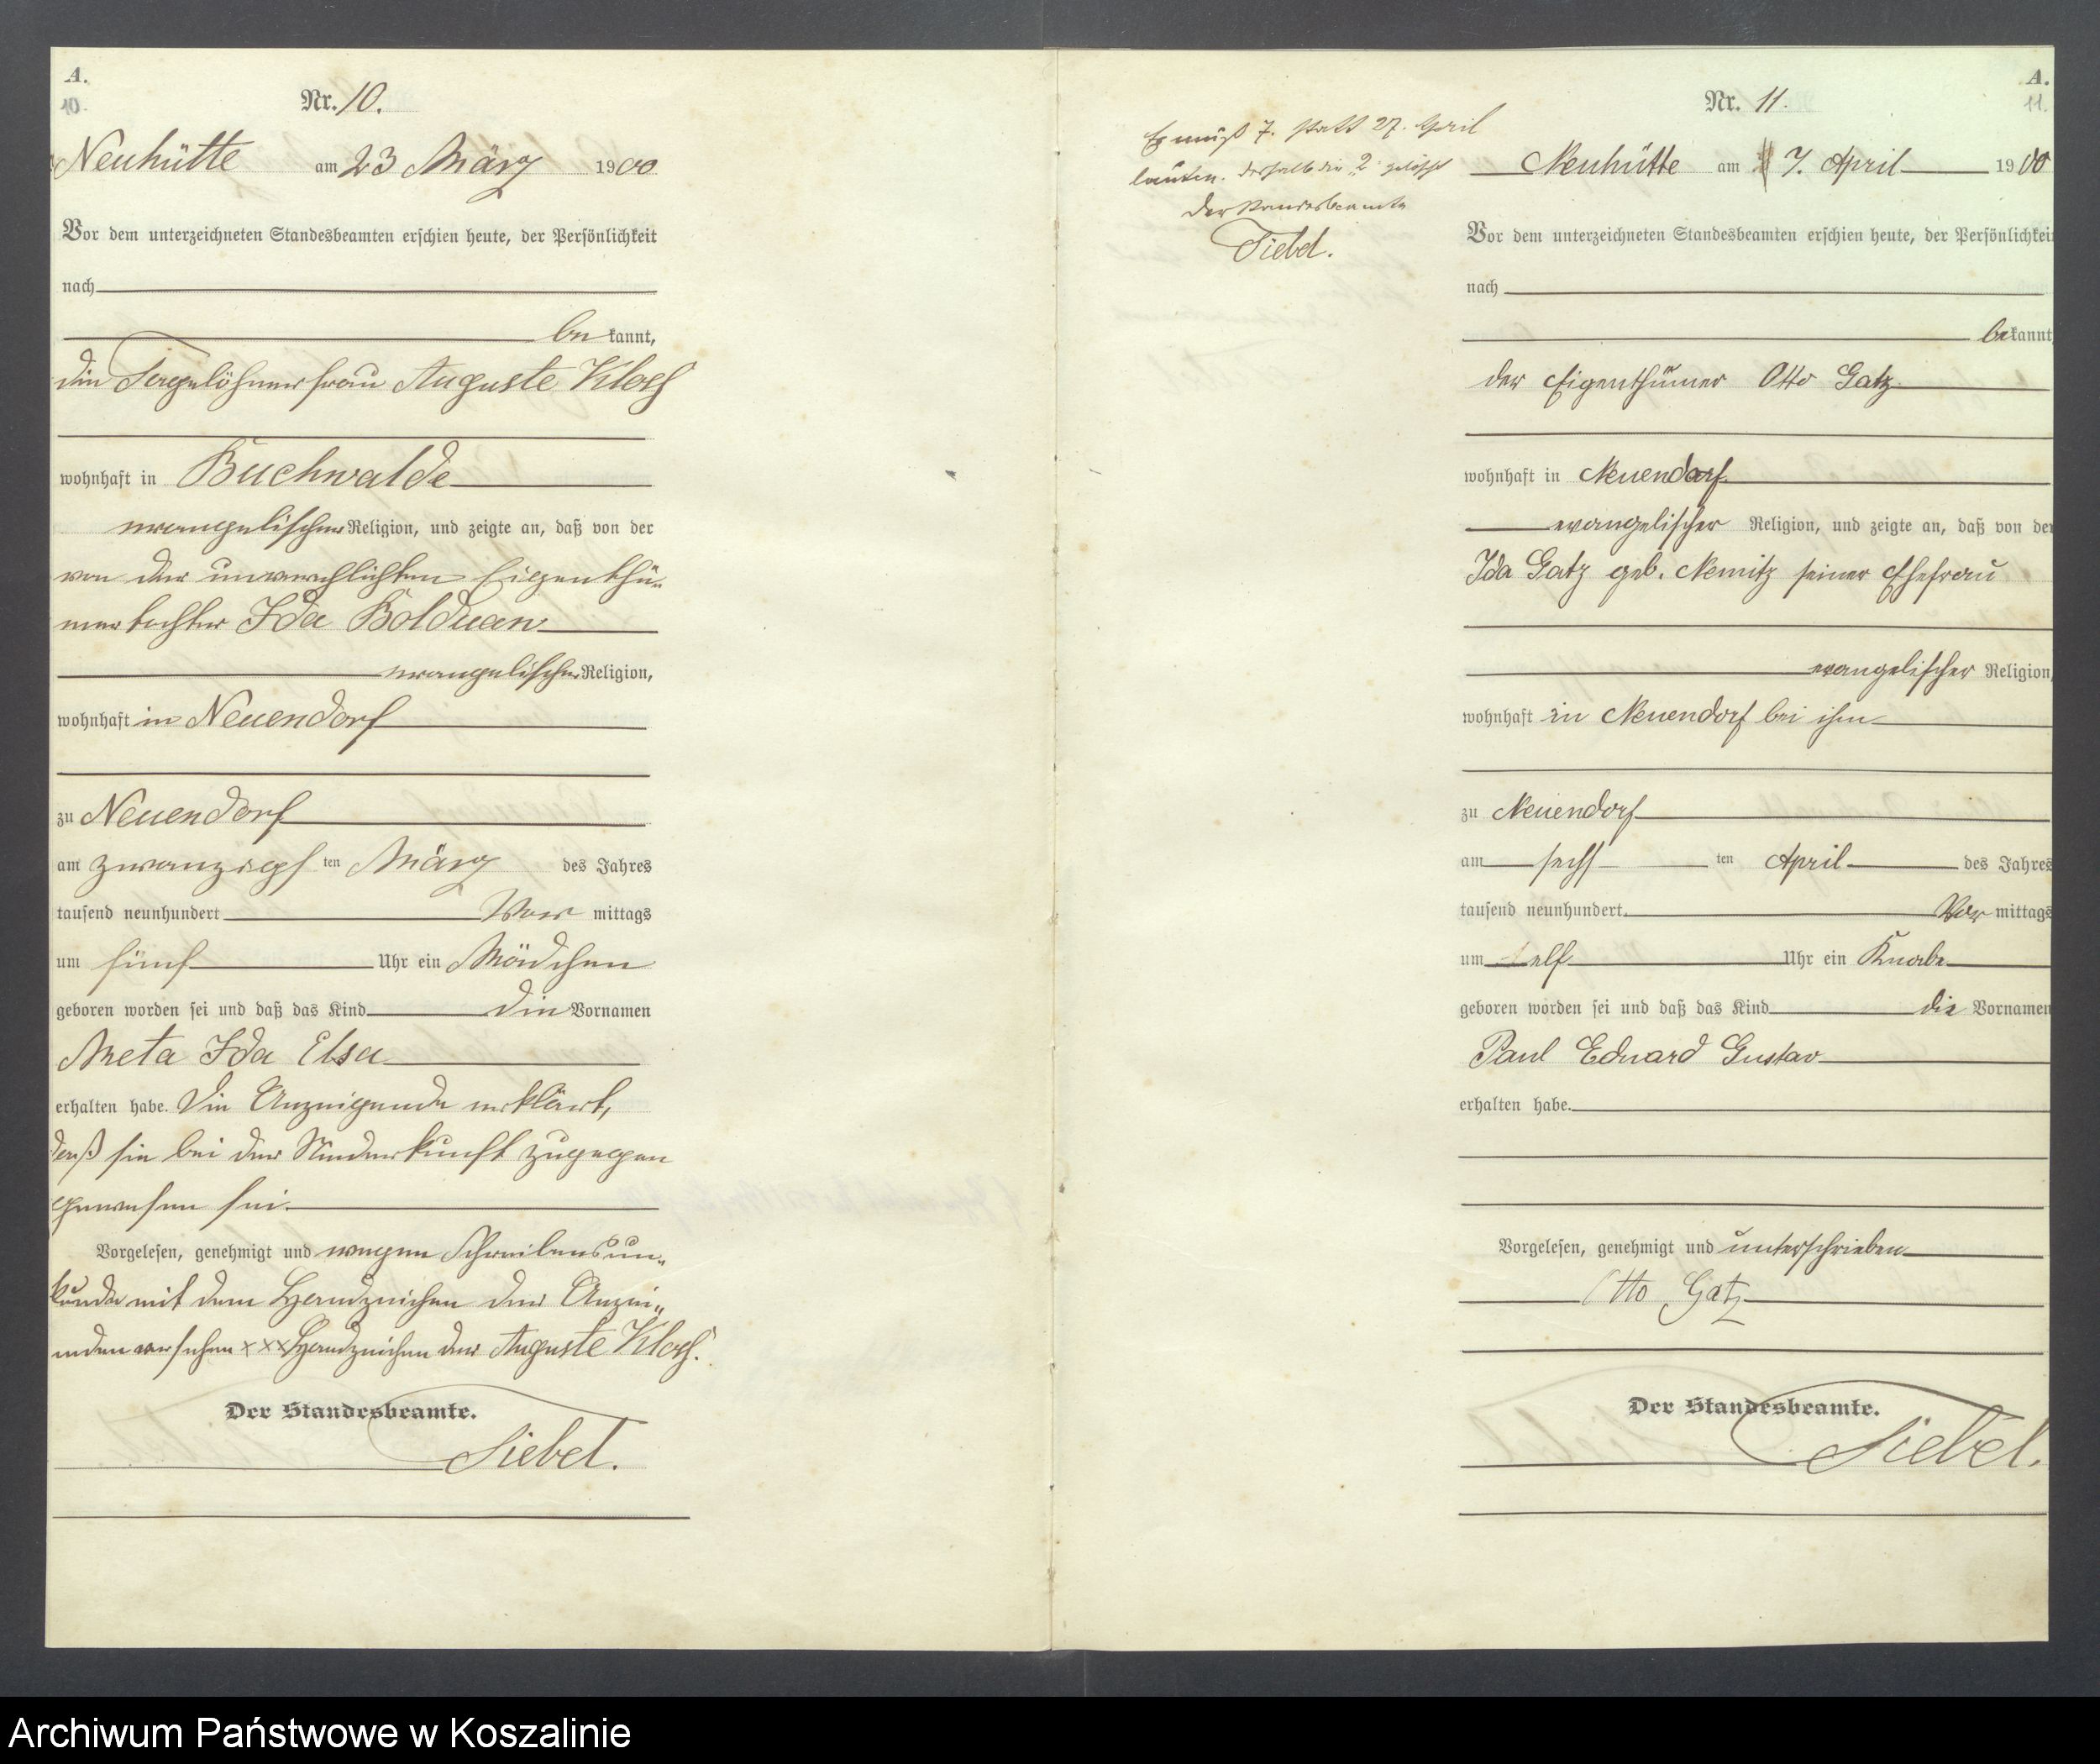 A.
10.
Nr. 10.
Neuhütte am 23 März 1900
Vor dem unterzeichneten Standesbeamten erschien heute, der Persönlichkeit
nach
be kannt,
die Tagelöhnerfrau Auguste
wohnhaft in Buchwalde
evangelischer Religion, und zeigte an, daß von der
von der unverehlichten Eigenthü-
mertochter Ida Bolduan
evangelischer Religion,
wohnhaft in Neuendorf
zu Neuendorf
am zwanzigs ten März des Jahres
tausend neunhundert Vor mittags
um fünf Uhr ein Mädchen
geboren worden sei und daß das Kind die Vornamen
Meta Ida Elsa
erhalten habe. Die Anzeigende erklärt,
daß sie bei der Niederkunft zugegen
gewesen sei.
Vorgelesen, genehmigt und wegen Schreibensun-
kunde mit dem Handzeichen der Anzei-
enden versehen xxx Handzeichen der Auguste
Der Standesbeamte.
Siebel.
A.
11.
Nr. 11.
Es muß 7. statt 27. April
lauten. deshalb die "2" gelöscht
Der Standesbeamte
Siebel.
Neuhütte am 7. April 1900
Vor dem unterzeichneten Standesbeamten erschien heute, der Persönlichkei
nach
be kannt
der Eigenthümer Otto Gatz
wohnhaft in Neuendorf
evangelischer Religion, und zeigte an, daß von der
Ida Gatz geb. Nemitz seiner Ehefrau
evangelischer Religion,
wohnhaft in Neuendorf bei ihm
zu Neuendorf
am sechs ten April des Jahres
tausend neunhundert Vor mittags
um elf Uhr ein Knabe
geboren worden sei und daß das Kind die Vornamen
Paul Eduard Gustav
erhalten habe.
Vorgelesen, genehmigt und unterschrieben
Otto Gatz
Der Standesbeamte.
Siebel.
Archiwum Państwowe w Koszalinie